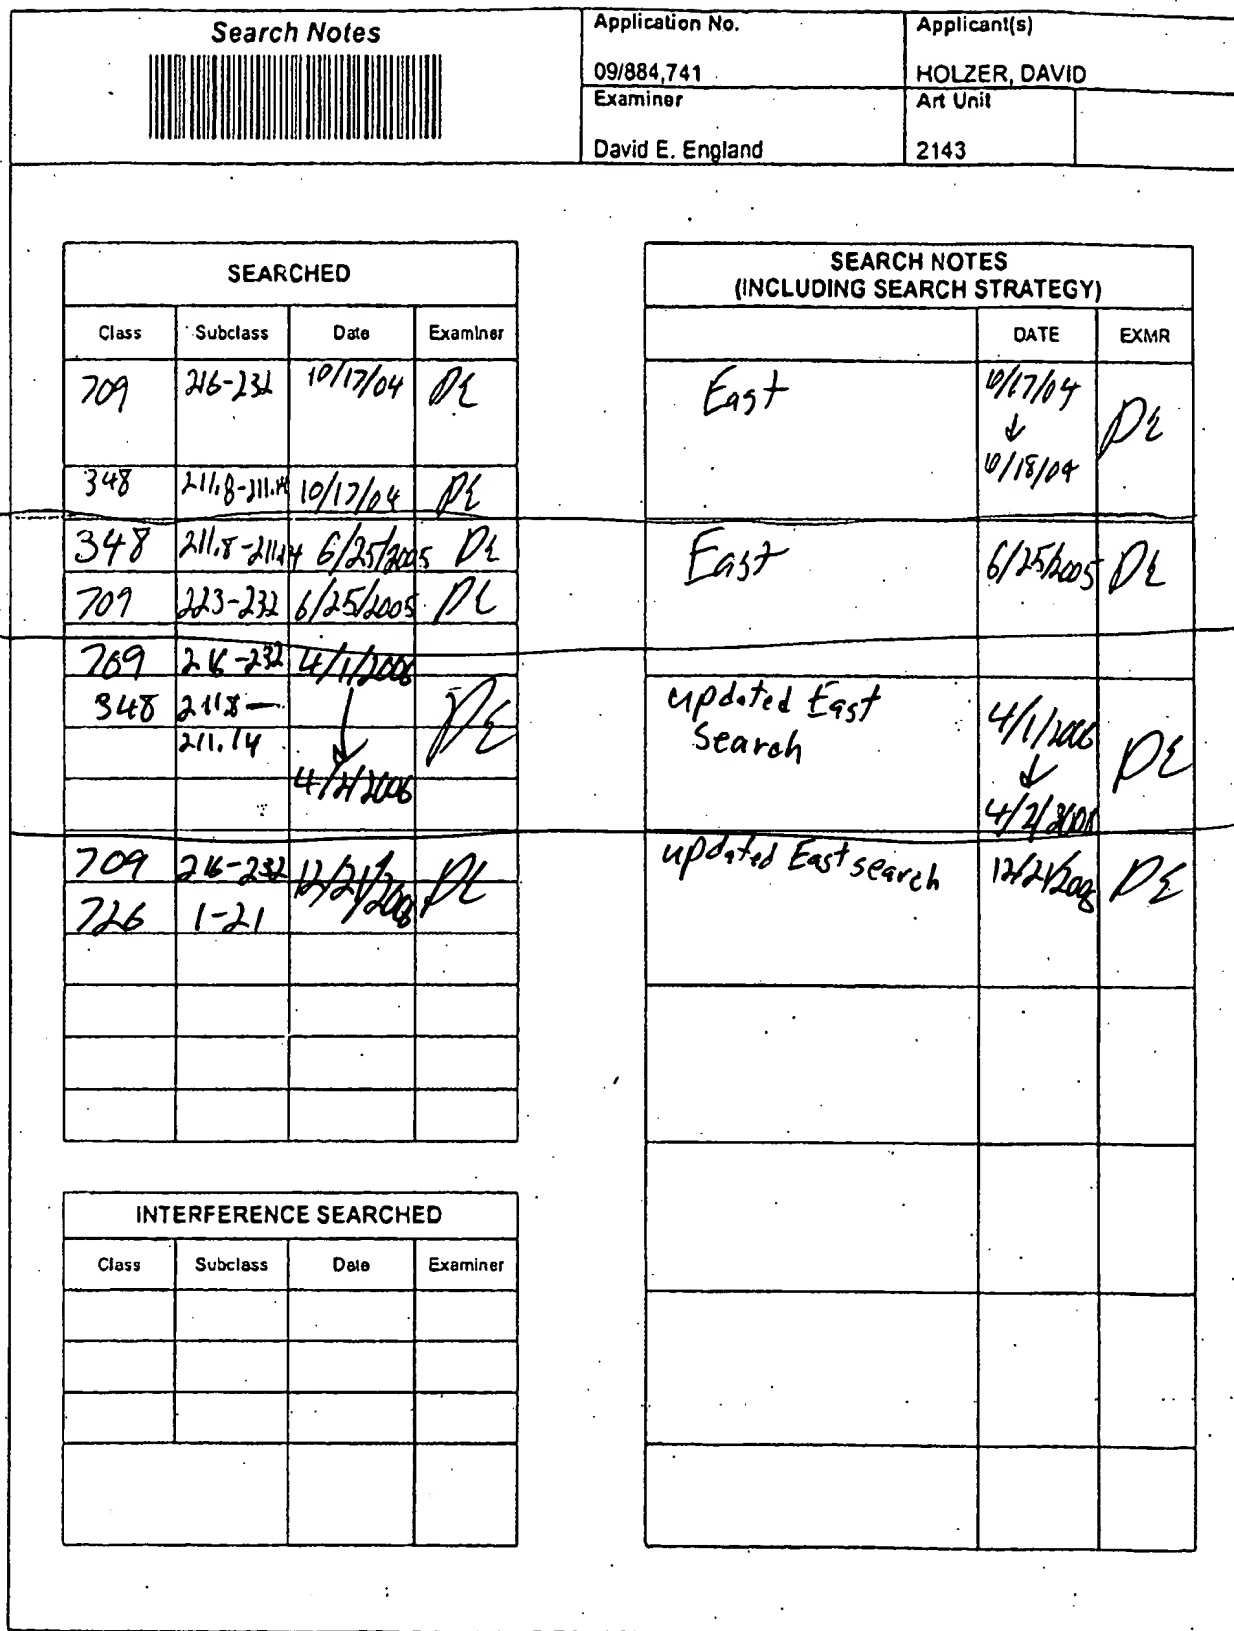 Search Notes
Application No.
09/884,741
Applicant(s)
HOLZER, DAVID
Examiner
David E. England
Art Unit
2143
SEARCHED
Class Subclass Date Examiner
709 216-232 10/17/04 DE
348 211.8-211.14 10/17/04 DE
348 211.8-211.14 6/25/2005 DE
709 223-232 6/25/2005 DE
709 216-232 4/1/2006
348 211.8-
211.14 DE
↓
4/2/2006
709 216-232 12/21/2006 DE
726 1-21
INTERFERENCE SEARCHED
Class Subclass Date Examiner
SEARCH NOTES
(INCLUDING SEARCH STRATEGY)
DATE EXMR
East 10/17/04 DE
↓
10/18/04
East 6/25/2005 DE
updated East
Search 4/1/2006 DE
↓
4/2/2006
updated East search 12/21/2006 DE